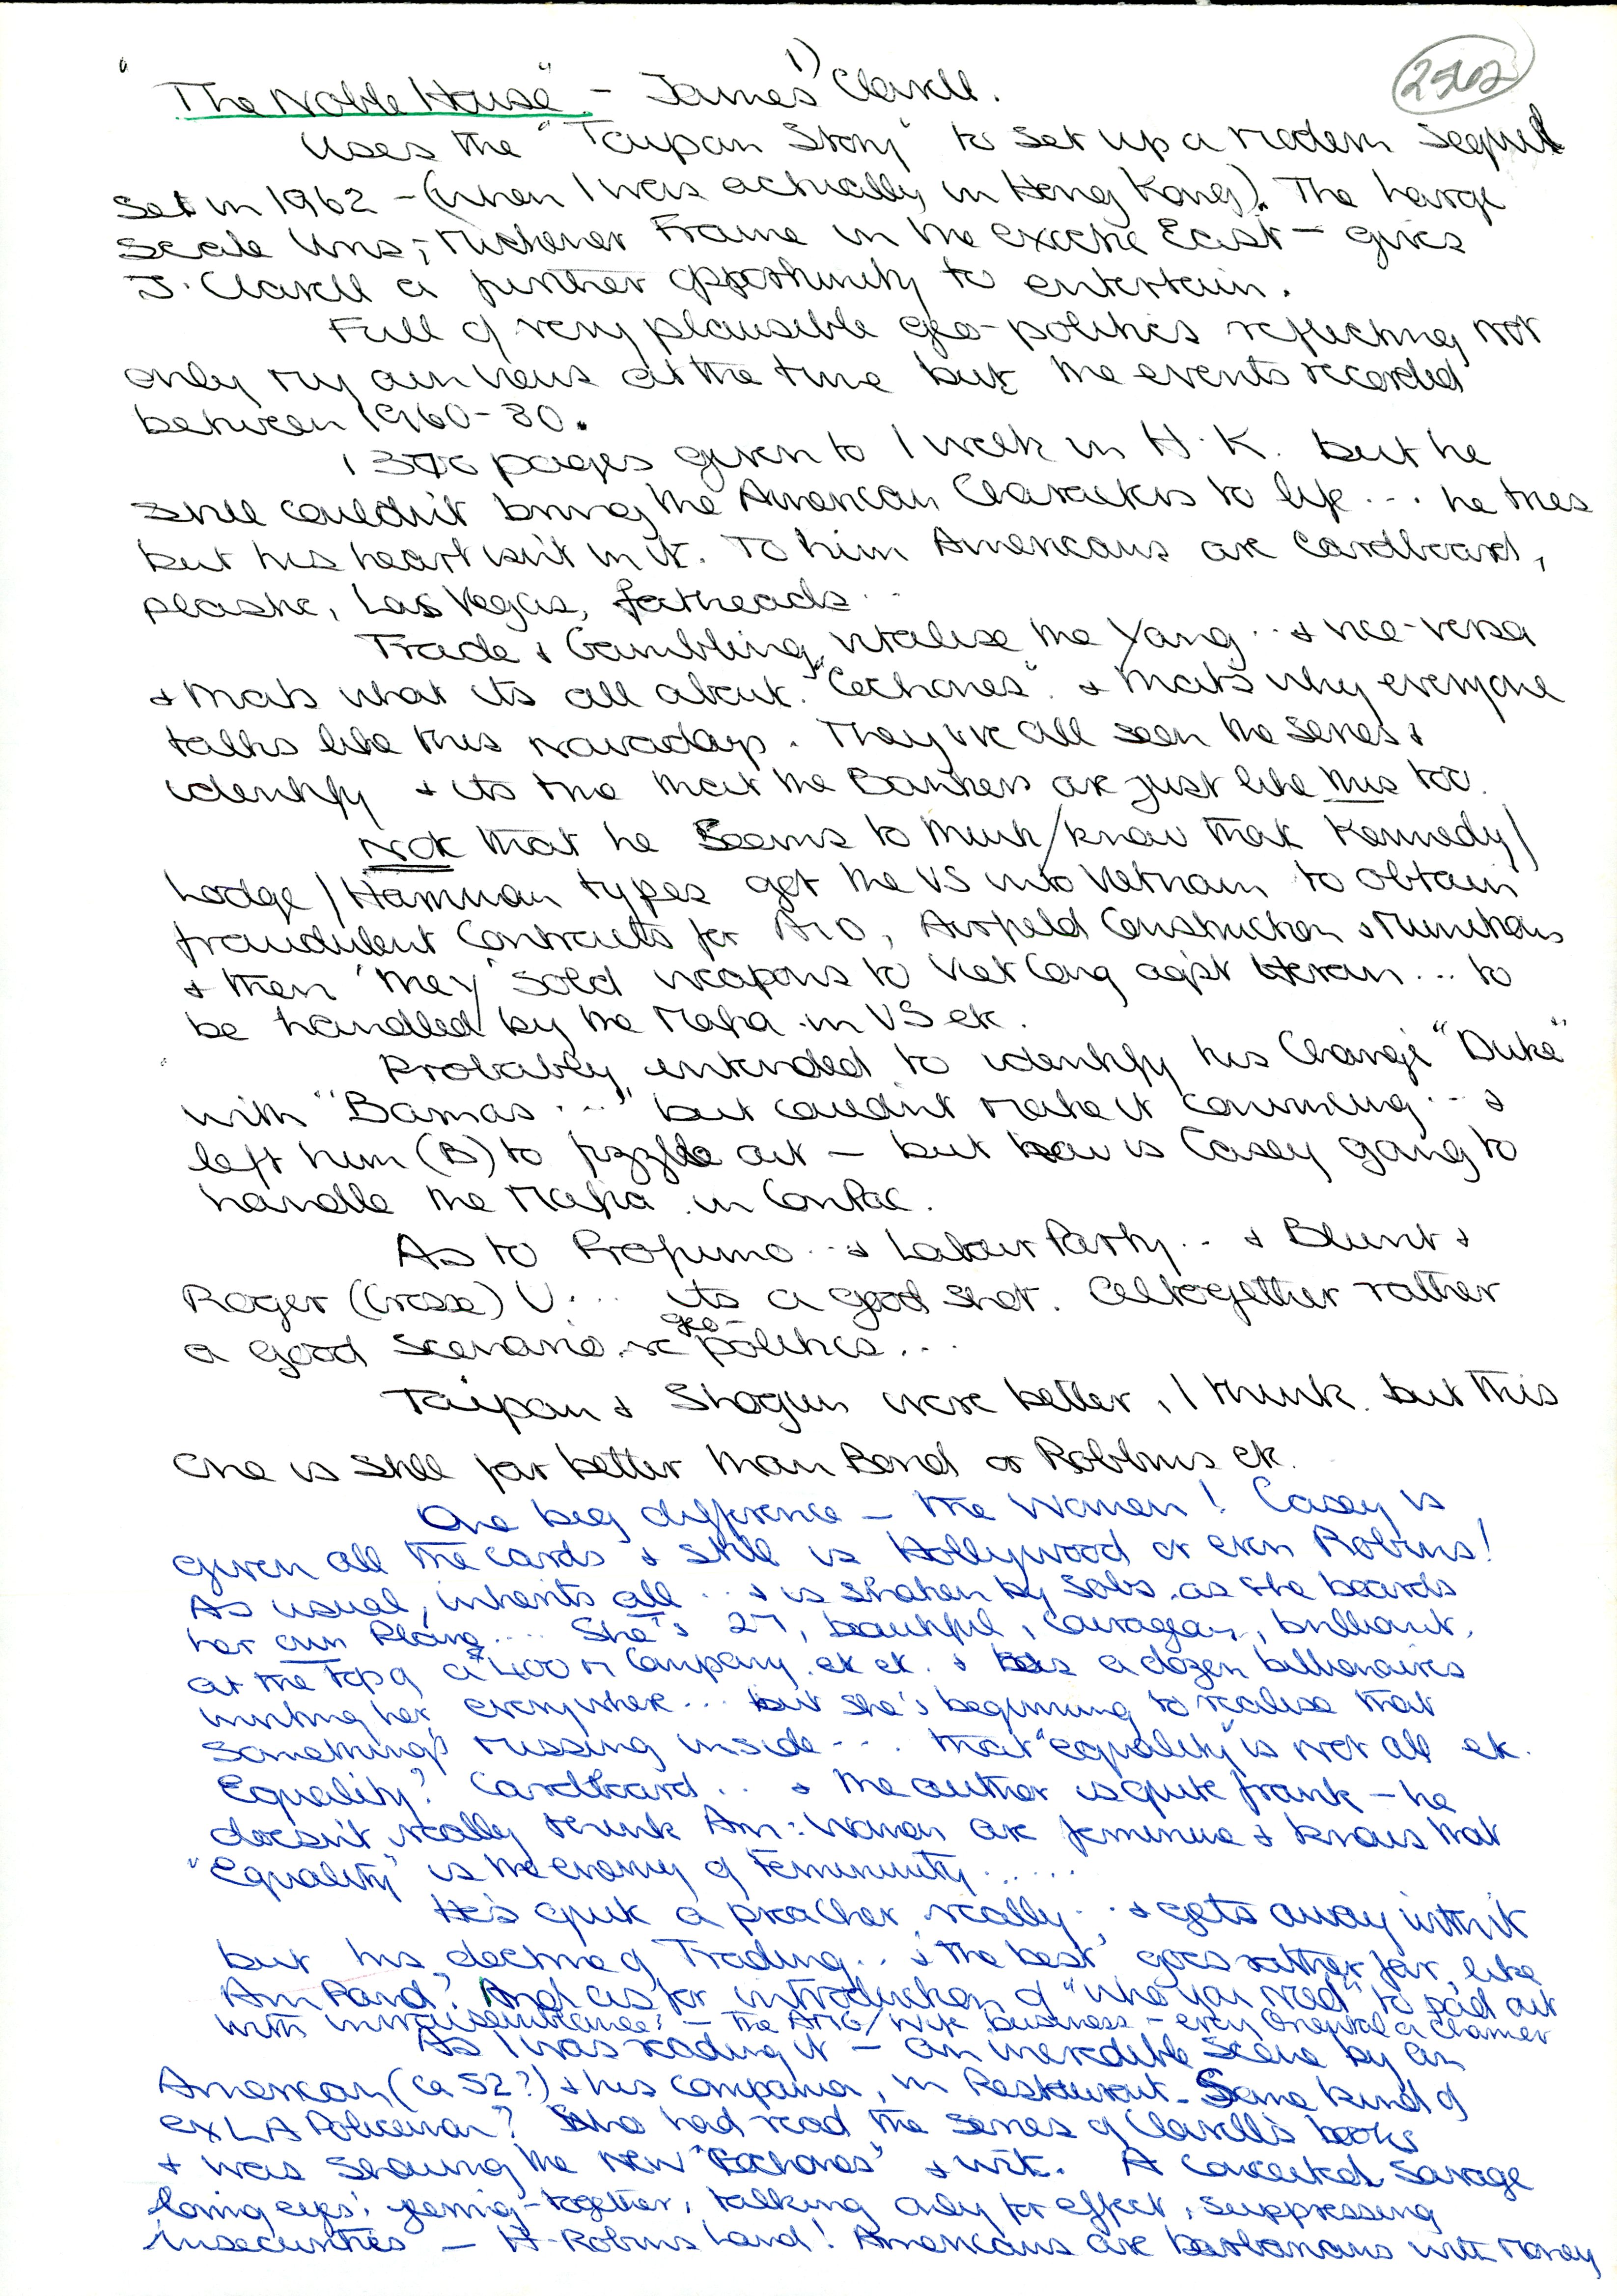 1)
2502
"The Noble House" - James Clavell.
Uses the "Taipan Story" to set up a modern sequel
set in 1962 - (when I was actually in Hong Kong). The large
scale Uris, Michener Frame in the exotic East - gives
J. Clavell a further opportunity to entertain.
Full of very plausible geo-politics reflecting not
only my own views at the time but the events recorded
between 1960-80.
1370 pages given to 1 week in H.K. but he
still couldn't bring the American Characters to life ... he tries
but his heart isn't in it. To him Americans are Cardboard,
plastic, Las Vegas, fatheads ..
Trade & Gambling vitalise the Yang .. & vice-versa
& that's what its all about. "Cochones". & that's why everyone
talks like this nowadays. They've all seen the series &
identify & its true that the Bankers are just like this too.
Not that he seems to think/know that Kennedy/
Lodge/Harriman types got the US into Vietnam to obtain
fraudulent Contracts for Aid, Airfield Construction & Munitions
& then 'they' sold weapons to Viet Cong agst Heroin ... to
be handled by the Mafia in US etc.
Probably intended to identify his Change "Duke"
with "Bamas ..." but couldn't make it convincing .. &
left him (B) to fizzle out - but how is Casey going to
handle the Mafia in ConPac.
As to Profumo .. & Labour Party .. & Blunt &
Roger (Crosse) ... its a good shot. Altogether rather
a good scenario re geo-politics ...
Taipan & Shogun were better, I think but this
one is still far better than Bond or Robbins etc.
One big difference - the Women! Casey is
given all the cards & still is Hollywood or even Robins!
As usual, inherits all .. & is shaken by sobs as she boards
her own Plane .... She's 27, beautiful, courageous, brilliant,
at the top of a $400 M Company etc etc. & has a dozen billionaires
inviting her everywhere ... but she's beginning to realise that
something's missing inside ... that "equality" is not all etc.
Equality? Cardboard .. & the author is quite frank - he
doesn't really think Am: Women are feminine & knows that
"Equality" is the enemy of Femininity .....
He's quite a preacher really .. & gets away with it
but his doctrine of Trading .. & 'the best' goes rather far, like
Am Rand? And as for introduction of "who you need" to paid out
with - The business - every Oriental a charmer
As I was reading it - an incredible scene by an
American (ca 52?) & his companion, in Restaurant. Some kind of
ex LA Policeman? Who had read the series of Clavell's books
& was showing the new "Cochones" & wit. A conceited savage
loving eyes, together, talking only for effect, suppressing
insecurities - H-Robins Land! Americans are barbarians with money